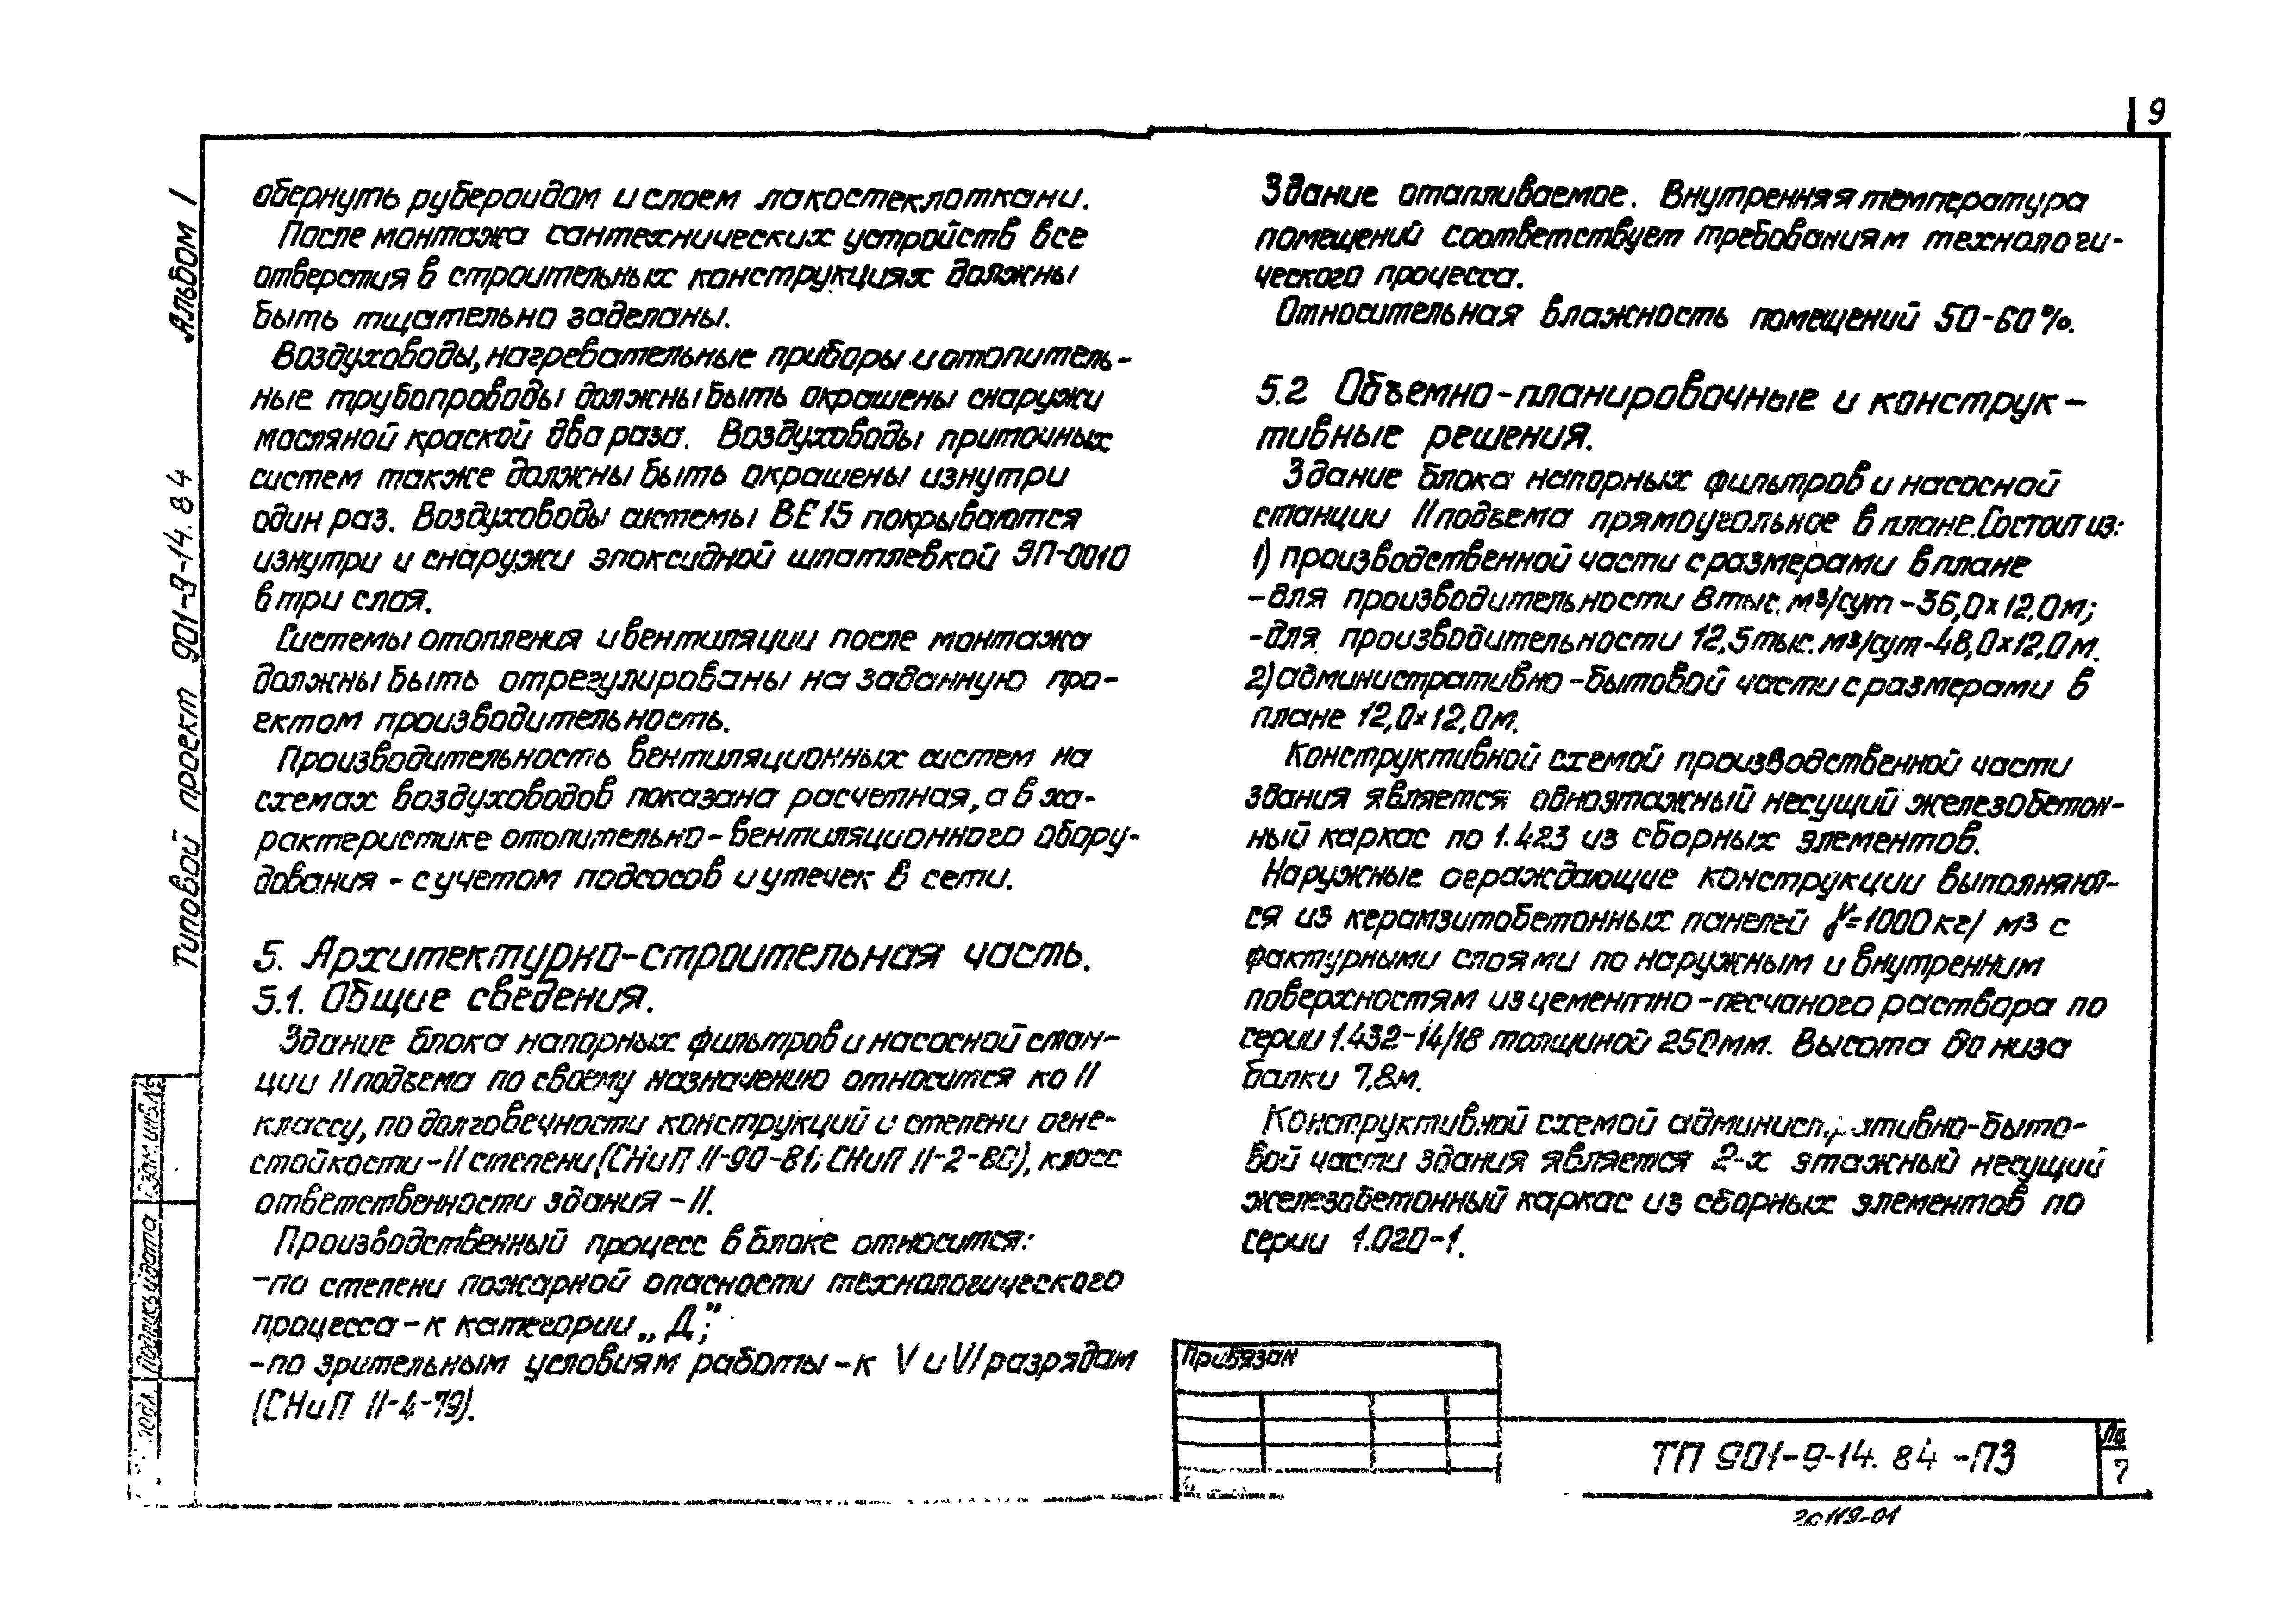 9
Альбом I
Типовой проект 901-9-14.84
обернуть рубероидом и слоем лакостеклоткани.
После монтажа сантехнических устройств все
отверстия в строительных конструкциях должны
быть тщательно заделаны.
Воздуховоды, нагревательные приборы и отопитель-
ные трубопроводы должны быть окрашены снаружи
масляной краской два раза. Воздуховоды приточных
систем также должны быть окрашены изнутри
один раз. Воздуховоды системы ВЕ15 покрываются
изнутри и снаружи эпоксидной шпатлевкой ЭП-0010
в три слоя.
Системы отопления и вентиляции после монтажа
должны быть отрегулированы на заданную про-
ектом производительность.
Производительность вентиляционных систем на
схемах воздуховодов показана расчетная, а в ха-
рактеристике отопительно-вентиляционного обору-
дования - с учетом подсосов и утечек в сети.
5. Архитектурно-строительная часть.
5.1. Общие сведения.
Здание блока напорных фильтров и насосной стан-
ции II подъема по своему назначению относится ко II
классу, по долговечности конструкций и степени огне-
стойкости - II степени (СНиП II-90-81; СНиП II-2-80), класс
ответственности здания - II.
Производственный процесс в блоке относится:
-по степени пожарной опасности технологического
процесса - к категории „Д";
-по зрительным условиям работы - к V и VI разрядам
(СНиП II-4-79).
Здание отапливаемое. Внутренняя температура
помещений соответствует требованиям технологи-
ческого процесса.
Относительная влажность помещений 50-60%.
5.2 Объемно-планировочные и конструк-
тивные решения.
Здание блока напорных фильтров и насосной
станции II подъема прямоугольное в плане. Состоит из:
1) производственной части с размерами в плане
-для производительности 8 тыс. м³/сут - 36,0×12,0м;
-для производительности 12,5 тыс. м³/сут - 48,0×12,0м.
2) административно-бытовой части с размерами в
плане 12,0×12,0м.
Конструктивной схемой производственной части
здания является одноэтажный несущий железобетон-
ный каркас по 1.423 из сборных элементов.
Наружные ограждающие конструкции выполняют-
ся из керамзитобетонных панелей γ=1000кг/м³ с
фактурными слоями по наружным и внутренним
поверхностям из цементно-песчаного раствора по
серии 1.432-14/18 толщиной 250мм. Высота до низа
балки 7,8м.
Конструктивной схемой административно-быто-
вой части здания является 2-х этажный несущий
железобетонный каркас из сборных элементов по
серии 1.020-1.
Взам.инв.№
Подпись и дата
подл.
Привязан
ТП 901-9-14.84 -ПЗ
7
20119-01